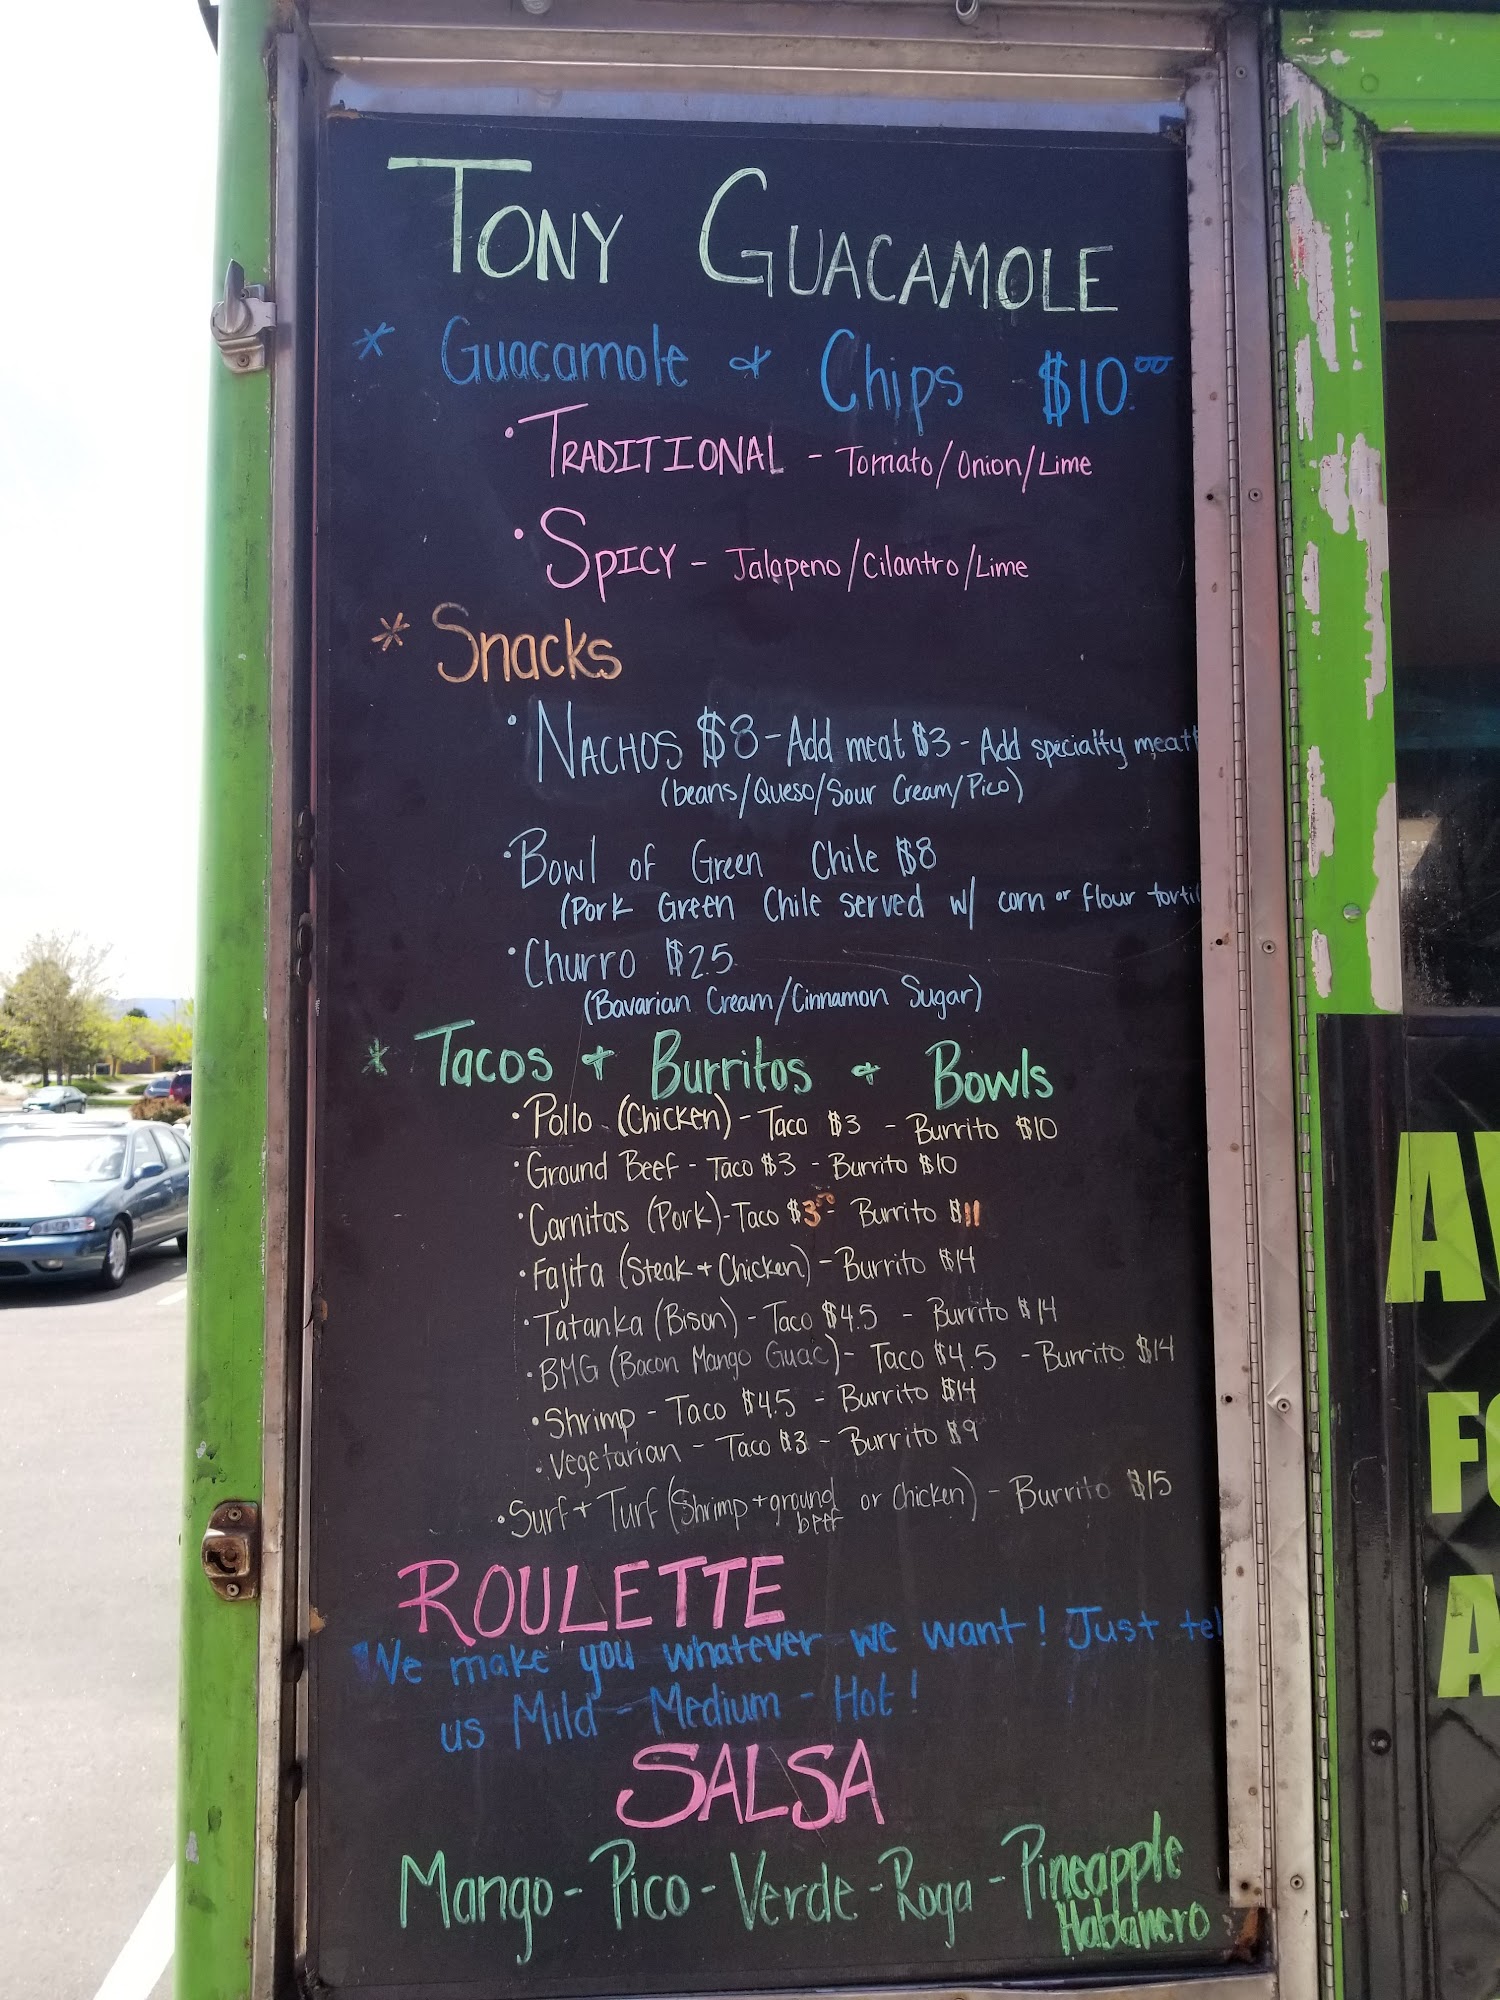 TONY GUACAMOLE
* Guacamole & Chips $10.00
• TRADITIONAL - Tomato/Onion/Lime
• SPICY - Jalapeno/Cilantro/Lime
* Snacks
• NACHOS $8 - Add meat $3 - Add specialty meat
(beans/Queso/Sour Cream/Pico)
• Bowl of Green Chile $8
(Pork Green Chile served w/ corn or flour torti
• Churro $2.5
(Bavarian Cream/Cinnamon Sugar)
* Tacos + Burritos + Bowls
• Pollo (Chicken) - Taco $3 - Burrito $10
• Ground Beef - Taco $3 - Burrito $10
• Carnitas (Pork) - Taco $3.00 - Burrito $11
• Fajita (Steak + Chicken) - Burrito $14
• Tatanka (Bison) - Taco $4.5 - Burrito $14
• BMG (Bacon Mango Guac) - Taco $4.5 - Burrito $14
• Shrimp - Taco $4.5 - Burrito $14
• Vegetarian - Taco $3 - Burrito $9
• Surf + Turf (Shrimp + ground beef or Chicken) - Burrito $15
ROULETTE
We make you whatever we want! Just tel
us Mild - Medium - Hot!
SALSA
Mango - Pico - Verde - Roga - Pineapple
Habanero